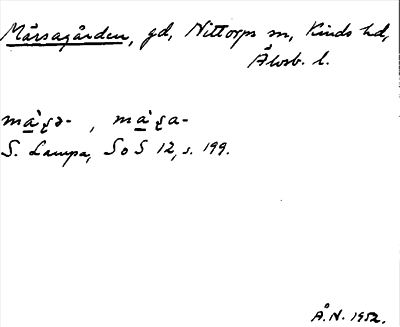 Mårsagården, gd, Nittorps sn, Kinds hd,
Älvsb. l.
mà̱ʂə- , mà̱ʂa-
S. Lampa, SoS 12, s. 199.
Å.N. 1952.